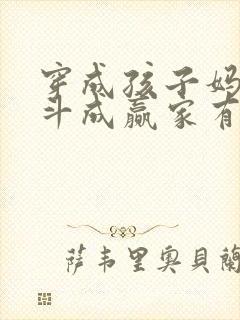 穿成孩子妈
斗成赢家有
萨韦里奥貝蘭